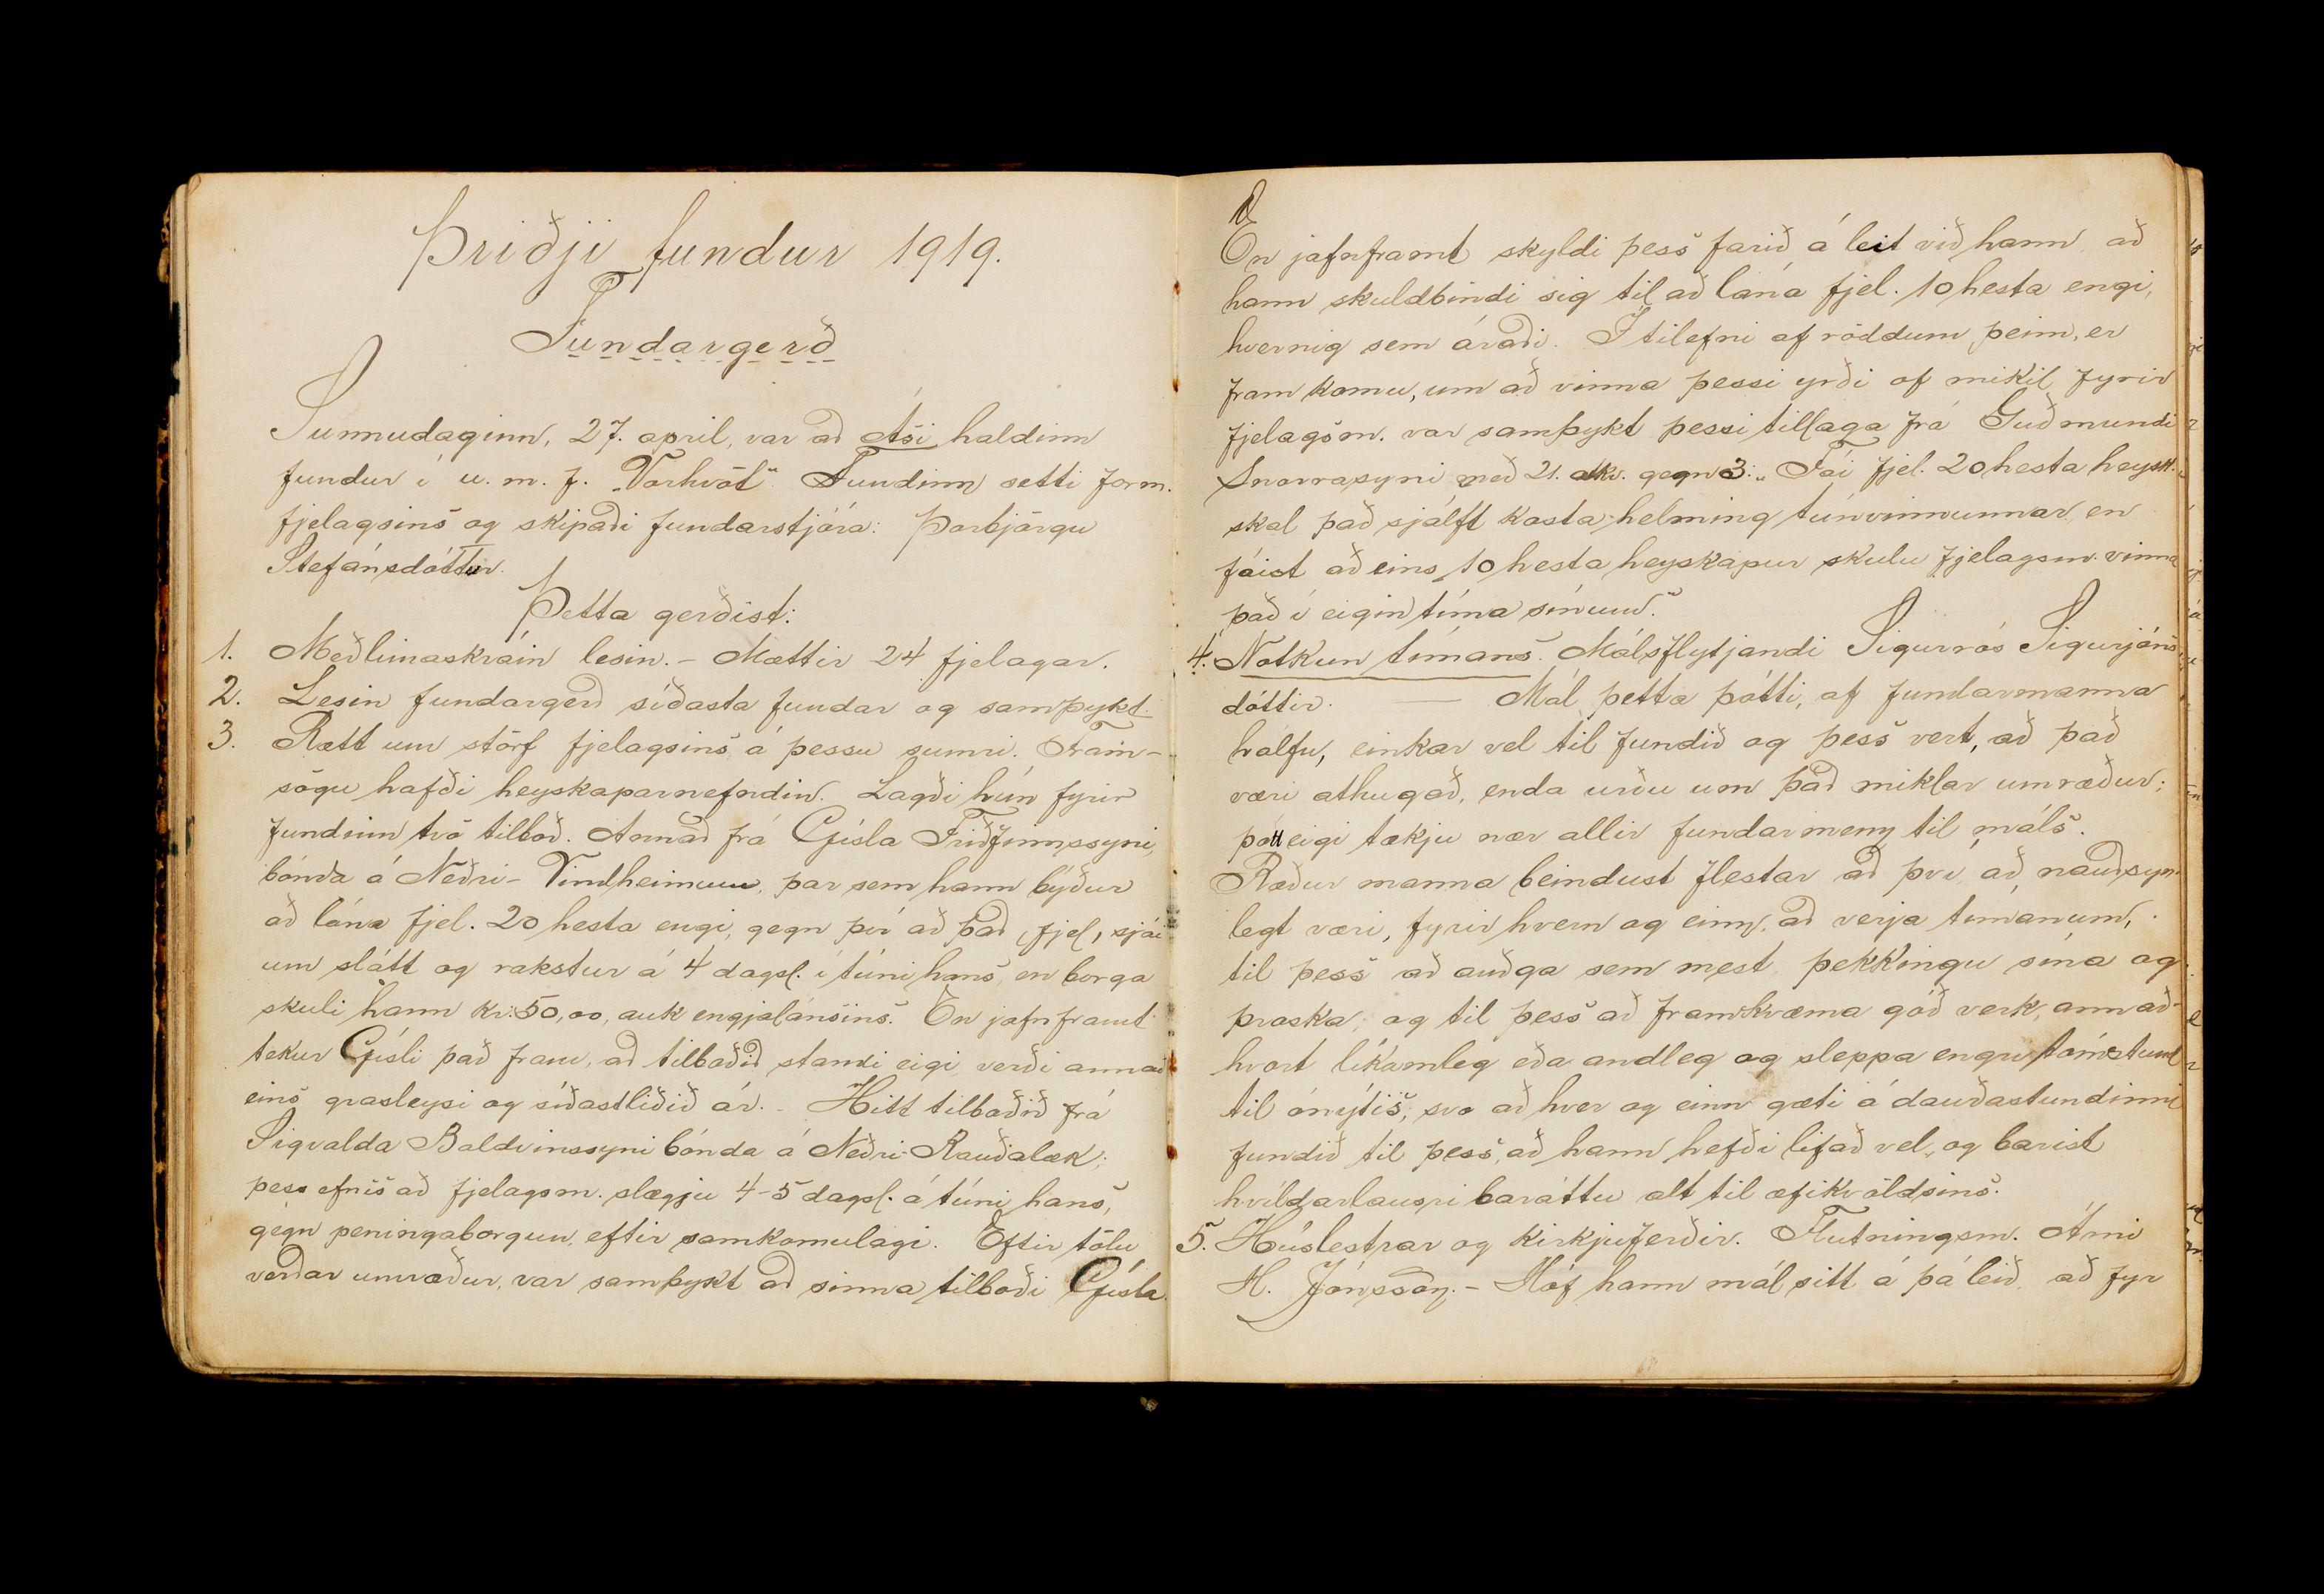 Þriðji fundur 1919.
Fundargerð
Sunnudaginn, 27. apríl, var að Ási haldinn
fundur í u. m. f. "Vorhvöt" Fundinn setti form.
fjelagsins og skipaði fundarstjóra: Þorbjörgu
Stefánsdóttur.
Þetta gerðist:
1. Meðlimaskráin lesin. - Mættir 24 fjelagar.
2. Lesin fundargerð síðasta fundar og samþykt.
3. Rætt um störf fjelagsins á þessu sumri. Fram-
sögu hafði heyskaparnefndin. Lagði hún fyrir
fundinn tvö tilboð. Annað frá Gísla Friðfinnssyni,
bónda á Neðri-Vindheimum, þar sem hann býður
að lána fjel. 20 hesta engi, gegn því að það, fjel, sjái
um slátt og rakstur á 4 dagsl. í túni hans, en borga
skuli hann kr: 50,00, auk engjalánsins. En jafnframt
tekur Gísli það fram, að tilboðið standi eigi verði annað
eins grasleysi og síðastliðið ár. - Hitt tilboðið frá
Sigvalda Baldvinssyni bónda á Neðri-Rauðalæk;
þess efnis að fjelagsm. slægju 4-5 dagsl. á túni hans,
gegn peningaborgun, eftir samkomulagi. Eftir tölu
verðar umræður, var samþykt að sinna tilboði Gísla.
En jafnframt skyldi þess farið á leit við hann að
hann skuldbindi sig til að lána fjel. 10 hesta engi,
hvernig sem áraði. Í tilefni af röddum þeim, er
fram komu, um að vinna þessi yrði of mikil fyrir
fjelagsm. var samþykt þessi tillaga frá Guðmundi
Snorrasyni með 21. atkv. gegn 3: "Fái fjel. 20 hesta heysk.
skal það sjálft kosta helming túnvinnunnar, en
fáist að eins 10 hesta heyskapur skulu fjelagsm. vinna
það í eigin tíma sínum."
4. Notkun tímans. Málsflytjandi Sigurrós Sigurjóns
dóttir. — Mál þetta þótti, af fundarmanna
hálfu, einkar vel til fundið og þess vert, að það
væri athugað, enda urðu um það miklar umræður;
þótt eigi tækju nær allir fundarmenn til máls.
Ræður manna beindust flestar að því að nauðsyn-
legt væri, fyrir hvern og einn, að verja tímanum,
til þess að auðga sem mest þekkingu sína og
þroska; og til þess að framkvæma góð verk, annað-
hvort líkamleg eða andleg og sleppa engri tómstund
til ónýtis; svo að hver og einn gæti á dauðastundinni
fundið til þess, að hann hefði lifað vel, og barist
hvíldarlausri baráttu alt til æfikvöldsins.
5. Húslestrar og kirkjuferðir. Flutningsm. Árni
H. Jónsson. - Hóf hann mál sitt á þá leið, að fyr